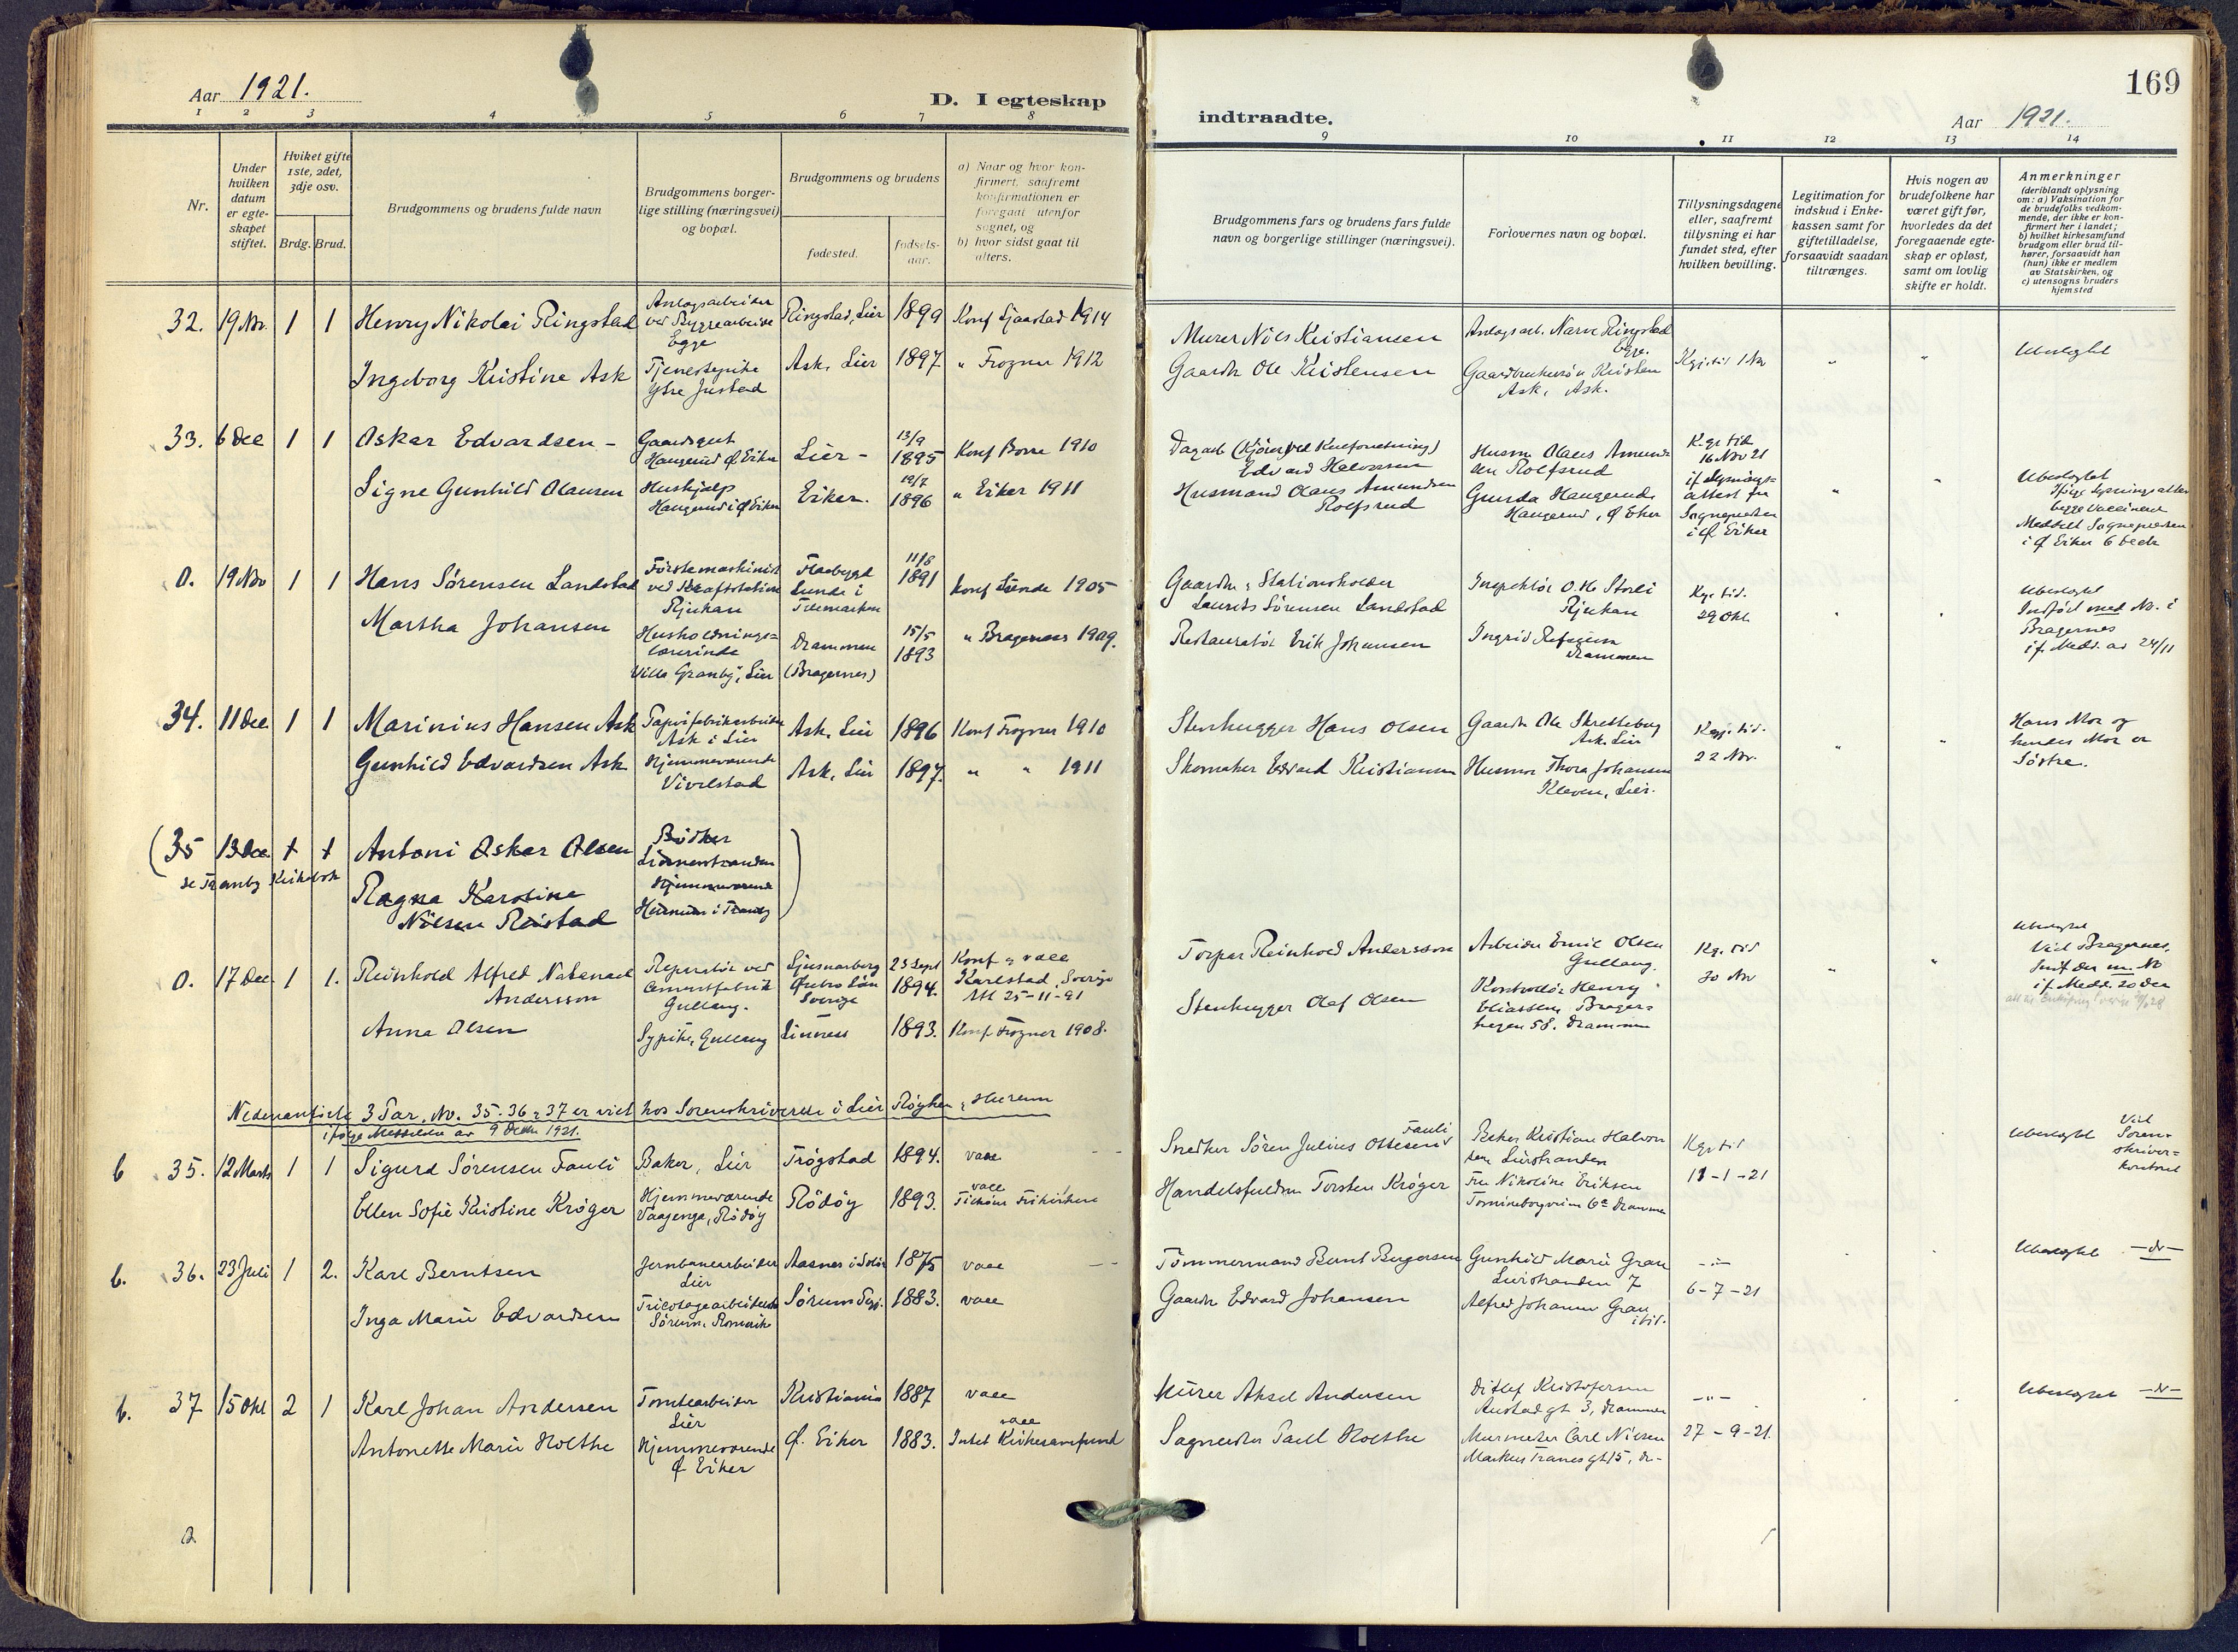 Aar 1921.
D. I egteskap
1 2 3 4 5 6 7 8
Nr.
Under hvilken datum er egteskapet stiftet.
Hvilket gifte 1ste, 2det, 3dje osv.
Brdg. Brud.
Brudgommens og brudens fulde navn
Brudgommens borgerlige stilling (næringsvei) og bopæl.
Brudgommens og brudens
fødested.
fødsels-aar.
a) Naar og hvor konfirmert, saafremt konfirmationen er foregaat utenfor sognet, og
b) hvor sidst gaat til alters.
169
indtraadte.
Aar 1921.
9 10 11 12 13 14
Brudgommens fars og brudens fars fulde navn og borgerlige stillinger (næringsvei).
Forlovernes navn og bopæl.
Tillysningsdagene eller, saafremt tillysning ei har fundet sted, efter hvilken bevilling.
Legitimation for indskud i Enkekassen samt for giftetilladelse, forsaavidt saadan tiltrænges.
Hvis nogen av brudefolkene har været gift før, hvorledes da det foregaaende egteskap er opløst, samt om lovlig skifte er holdt.
Anmerkninger
(deriblandt oplysning om: a) Vaksination for de brudefolks vedkommende, der ikke er konfirmert her i landet;
b) hvilket kirkesamfund brudgom eller brud tilhører, forsaavidt han (hun) ikke er medlem av Statskirken, og
c) utensogns bruders hjemsted
32. 19 Nov. 1 1 Henry Nikolai Ringstad
Anlægsarbeider ved Byggearbeide Egge
Ringstad, Lier 1899 Konf Sjaastad 1914
Murer Nils Kristiansen
Anlægsarb. Narve Ringstad Egge.
Ingeborg Kristine Ask
Tjenestepike Ytre Justad
Ask, Lier 1897 " Frogner 1912
Gaardbr Ole Kristensen
Gaardbrukersøn Kristen Ask, Ask.
Kgj. tid 1 Nov " " Ubeslegtet
33. 6 Dec 1 1 Oskar Edvardsen -
Gaardsgut Haugerud Ø Eiker
Lier - 13/9 1895 Konf Borre 1910
Edvard Halvorsen
Husm Olaus Amundsen Rolfsrud
Signe Gunhild Olausen
Hushjælp Haugerud i Ø Eiker
Eiker. 19/7 1896 " Eiker 1911
Husmand Olaus Amundsen Rolfsrud
Gunda Haugerud, Haugerud, Ø Eker
K.gj tid 16 Nov 21 if lysningsattest fra Sognepresten i Ø Eiker
" " Ubeslegtet
Ifølge lysningsattest begge vaccineret
Meddelt Sognepresten i Ø Eiker 6 Decbr
0. 19 Nov 1 1 Hans Sørensen Landstad
Førstemaskinist ved Kraftstation Rjukan
Flaabygd Lunde i Telemarken 11/8 1891 Konf Lunde 1905
Gaardbr & Stationsholder Laurits Sørensen Landstad
Inspektør O. H. Storli Rjukan
Kgj tid. 29 Okt.
Martha Johansen
Husholdningslærerinde Villa Granby, Lier
Drammen (Bragernes) 15/5 1893 " Bragernes 1909.
Restauratør Erik Johansen
Ingrid Refsum Drammen
Ubeslegtet
Indført med No. i Bragernes if. Medd. av 24/11
34. 11 Dec 1 1 Marinius Hansen Ask
Papirfabrikarbeider Ask i Lier
Ask, Lier 1896 Konf Frogner 1910
Stenhugger Hans Olsen
Gaardbr Ole Skretteberg Ask, Lier
Kgj. tid. 22 Nov.
Gunhild Edvardsen Ask
Hjemmeværende Vivelstad
Ask, Lier 1897. " " 1911
Skomaker Edvard Kristiansen
Husmor Thora Johansen Kleven, Lier.
" " Hans Mor og hendes Mor er Søstre.
(35 13 Dec. 1 1 Antoni Oskar Olsen
Bødker Lierstranden
se Tranby Kirkebok
Ragna Karoline Nilsen Reistad
Hjemmeværende Hennum i Tranby )
0. 17 Dec 1 1. Reinhold Alfred Natanael Andersson
Reparatør ved Cementfabrik Gullaug.
Ljusnarberg Ørebro Län Sverige 23 Sept 1894.
Konf & vacc Karlstad, Sverige Att 25-11-21
Torpar Reinhold Andersson
Arbeider Emil Olsen Gullaug.
Kgj. tid 30 Nov
Anna Olsen
Sypike, Gullaug Linnes 1893. Konf Frogner 1908.
Stenhugger Olaf Olsen
Kontrollør Henry Eliassen, Bragerhagen 58. Drammen
" " Ubeslegtet
Viet Bragernes, Indf der m. No if. Medd. 20 Dec
Nedenanførte 3 Par, No. 35. 36 & 37 er viet hos Sorenskriveren i Lier Røyken & Hurum
ifølge Meddelelse av 9 Decbr 1921.
b 35. 12 Marts 1 1 Sigurd Sørensen Fauli
Baker, Lier Trøgstad 1894. vacc
Snedker Søren Julius Ottesen Fauli
Baker Kristian Halvorsen Lierstranden
Kgj tid 11-1-21
Ellen Sofie Kristine Krøger
Hjemmeværende Vaagenga, Rødøy
Rødøy 1893. vacc Frikirken
Handelsfuldm Torsten Krøger
Fru Nikoline Eriksen
Ubeslegtet Viet Sorenskriverkontoret
b. 36. 23 Juli 1 2. Karl Berntsen
Jernbanearbeider Lier
Aasnes i Solør 1875 vacc
Tømmermand Bernt Bergersen
Gunhild Marie Gran Lierstranden 7
-"- 6-7-21
Inga Marie Edvardsen
Tricotagearbeiderske Sørum, Romerike
Sørum 1883. vacc
Gaardbr Edvard Johansen
Alfred Johannes Gran ibid.
Ubeslegtet -d-
b. 37 15 Okt 2 1 Karl Johan Andersen
Tomtearbeider Lier
Kristiania 1887 vacc
Murer Aksel Andersen
Ditlef Kristofersen Austad gt 3, Drammen
-"- 27-9-21.
Antonette Marie Holthe
Hjemmeværende Ø Eiker
Ø. Eiker 1883. vacc Intet Kirkesamfund
Sagmester Paul Holthe
Murmester Carl Nilsen Markus Tranes gt 15, Dr-
Ubeslegtet -d-